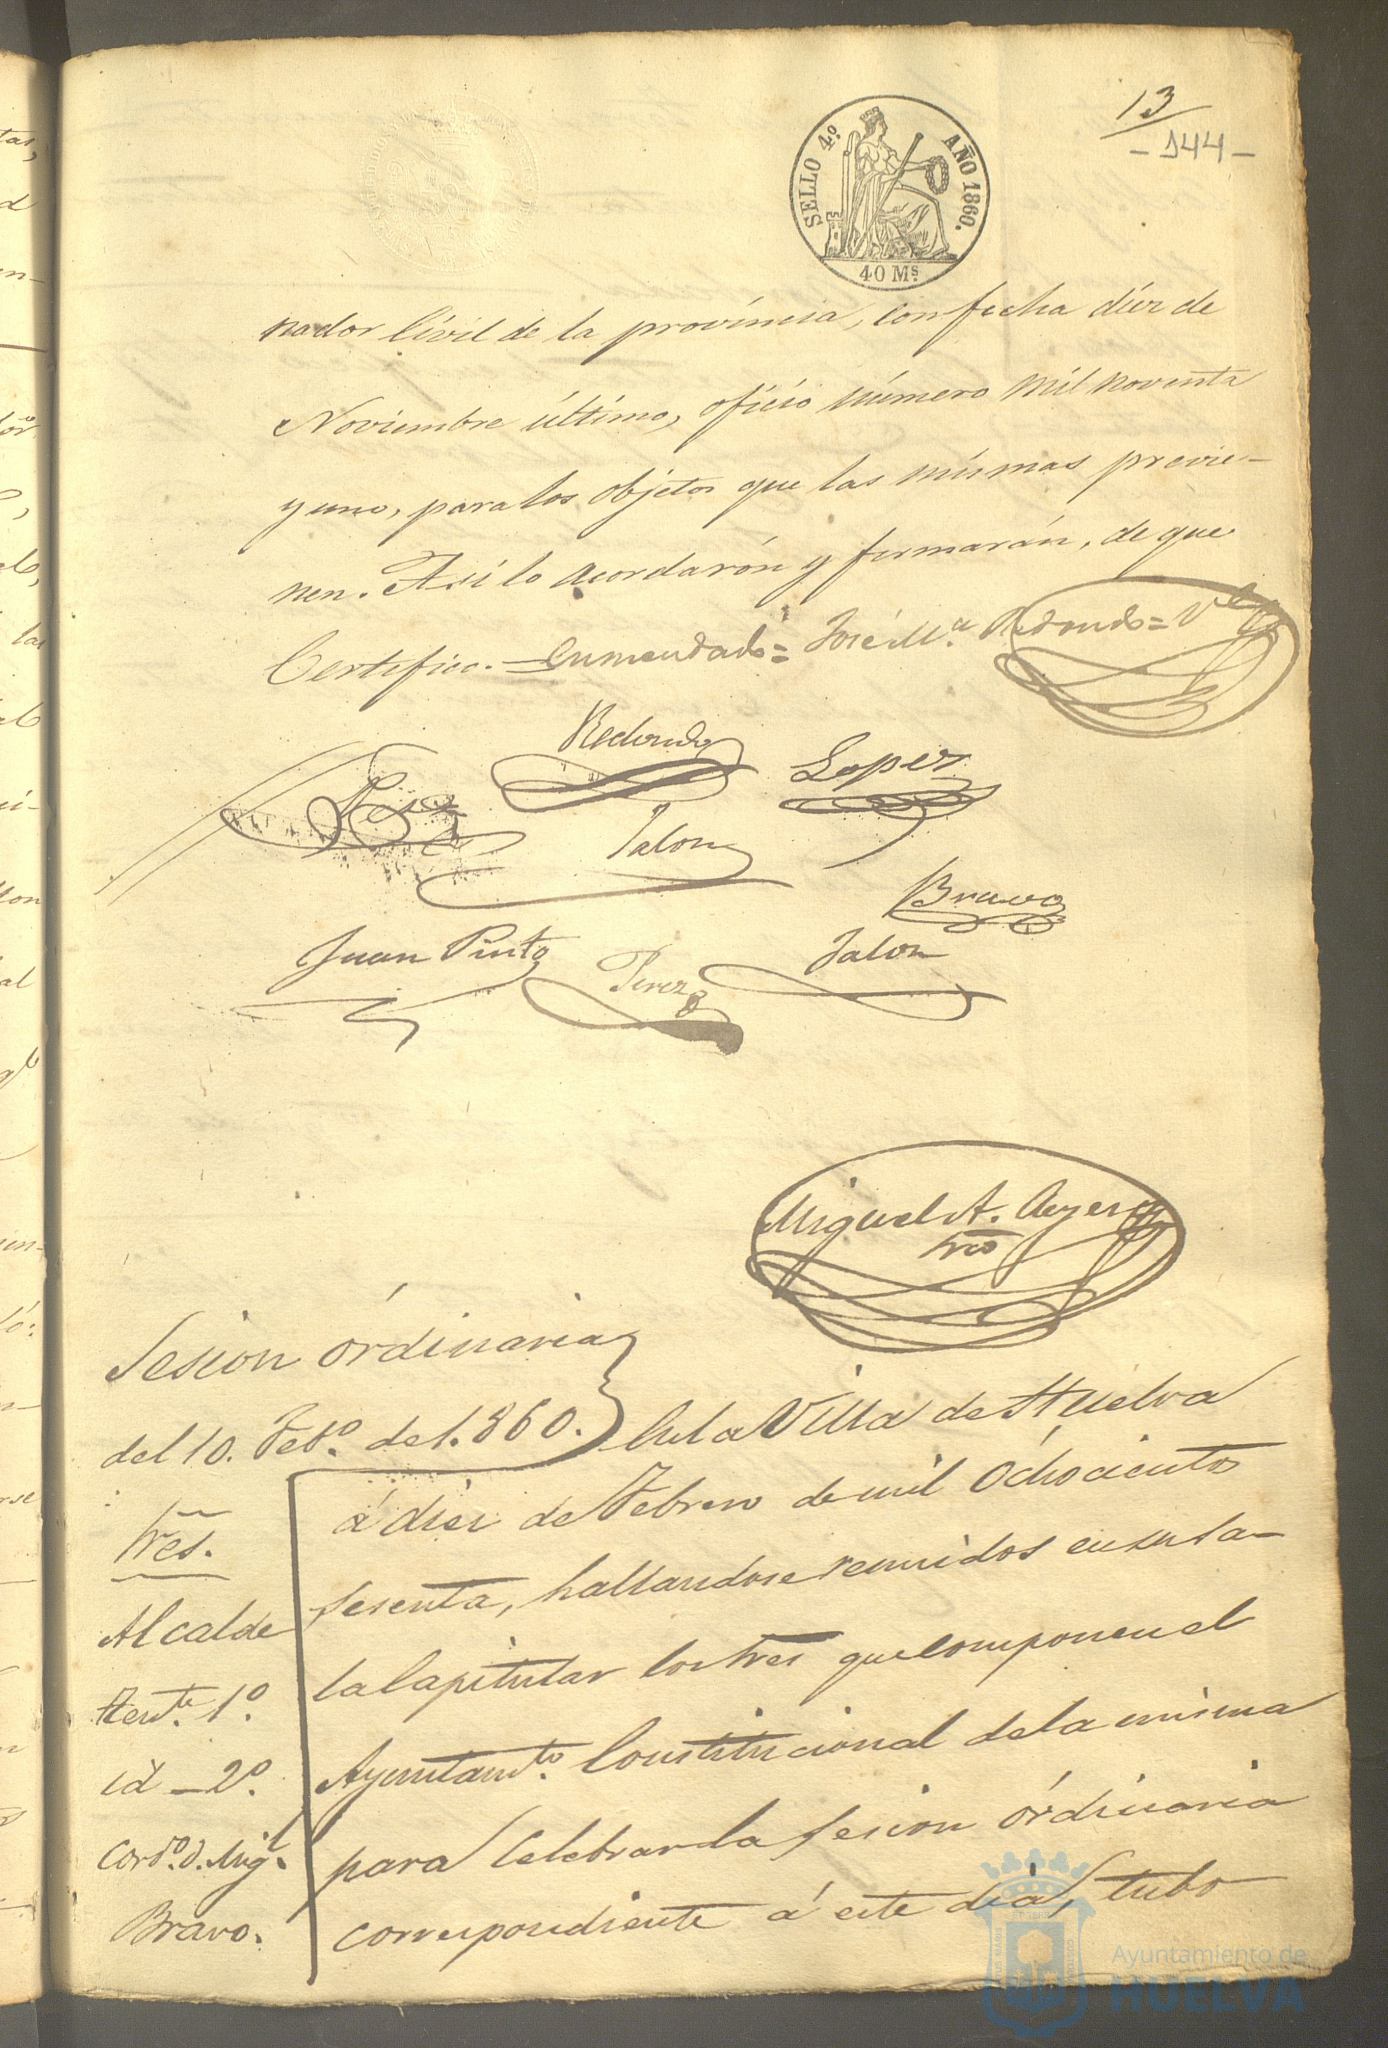 13
- 144 -
SELLO 4º. AÑO 1860.
40 Ms.
nador Civil de la província, con fecha díez de
Noviembre último, oficio número mil noventa
y uno, para los objetos que las mismas previe-
nen. Así lo acordarón y firmarán, de que
Certifico. = Enmendado = José Mª. Redondo = Vle
Redondo
Lopez
Jalon
Bravo
Juan Pinto
Perez
Jalon
Miguel A.
srio
Sesion órdinaria
del 10. Febº. de 1.860.
En la Villa de Huelva
á diez de Febrero de mil óchocientos
sesenta, hallandose reunidos en su sa-
la Capitular los Sres que componen el
Ayuntamto. Constitucional de la misma
para Celebrar la sesion órdinaria
correspondiente á este dia, tubo
Sres.
Alcalde
Tente. 1º.
id - 2º.
Corдº. D. Migl.
Bravo.
Ayuntamiento de
HUELVA